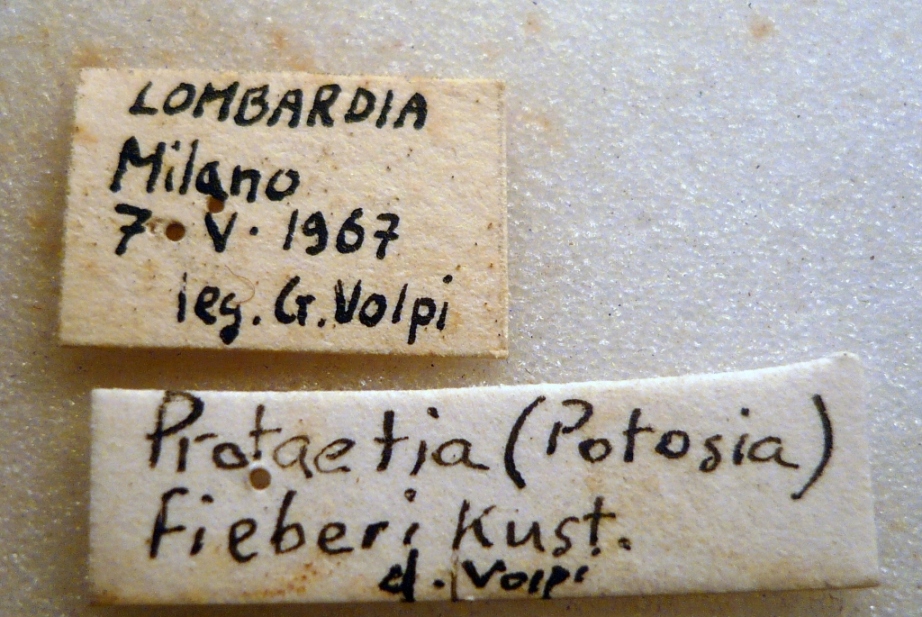 LOMBARDIA
Milano
7. V. 1967
leg. G. Volpi
Protaetia (Potosia)
fieberi Kust.
d. Volpi